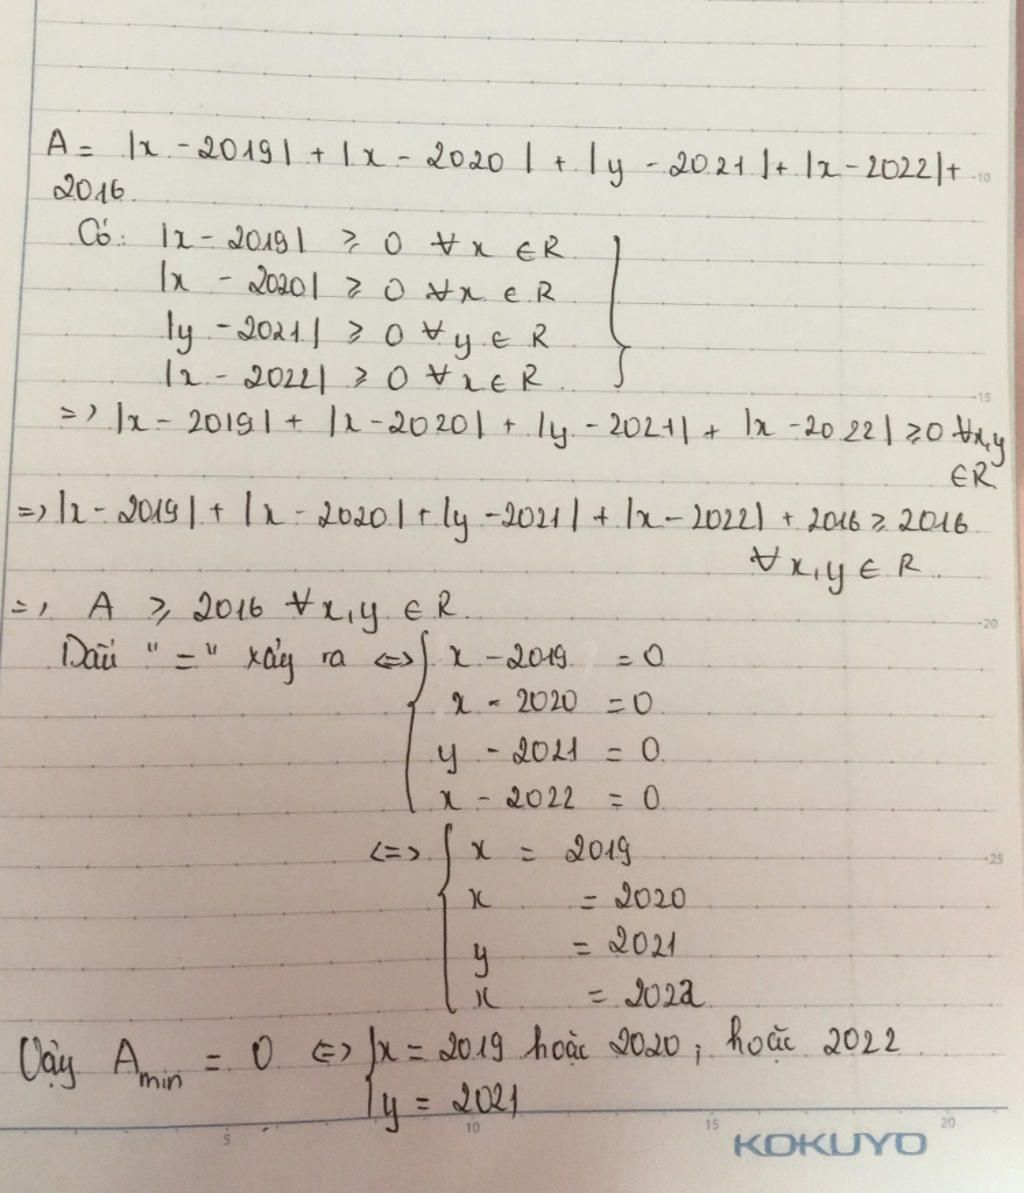 A = |x - 2019| + |x - 2020| + |y - 2021| + |x - 2022| +
2016
Có: |x - 2019| ⩾ 0 ∀x ∈ R
|x - 2020| ⩾ 0 ∀x ∈ R
|y - 2021| ⩾ 0 ∀y ∈ R
|x - 2022| ⩾ 0 ∀x ∈ R
=> |x - 2019| + |x - 2020| + |y - 2021| + |x - 2022| ⩾ 0 ∀x,y
∈ R
=> |x - 2019| + |x - 2020| + |y - 2021| + |x - 2022| + 2016 ⩾ 2016
∀x,y ∈ R
=> A ⩾ 2016 ∀x,y ∈ R
Dấu "=" xảy ra <=> { x - 2019 = 0
x - 2020 = 0
y - 2021 = 0
x - 2022 = 0
<=> { x = 2019
x = 2020
y = 2021
x = 2022
Vậy Amin = 0 <=> { x = 2019 hoặc 2020; hoặc 2022
y = 2021
10
15
20
25
5 10 15 20
KOKUYO